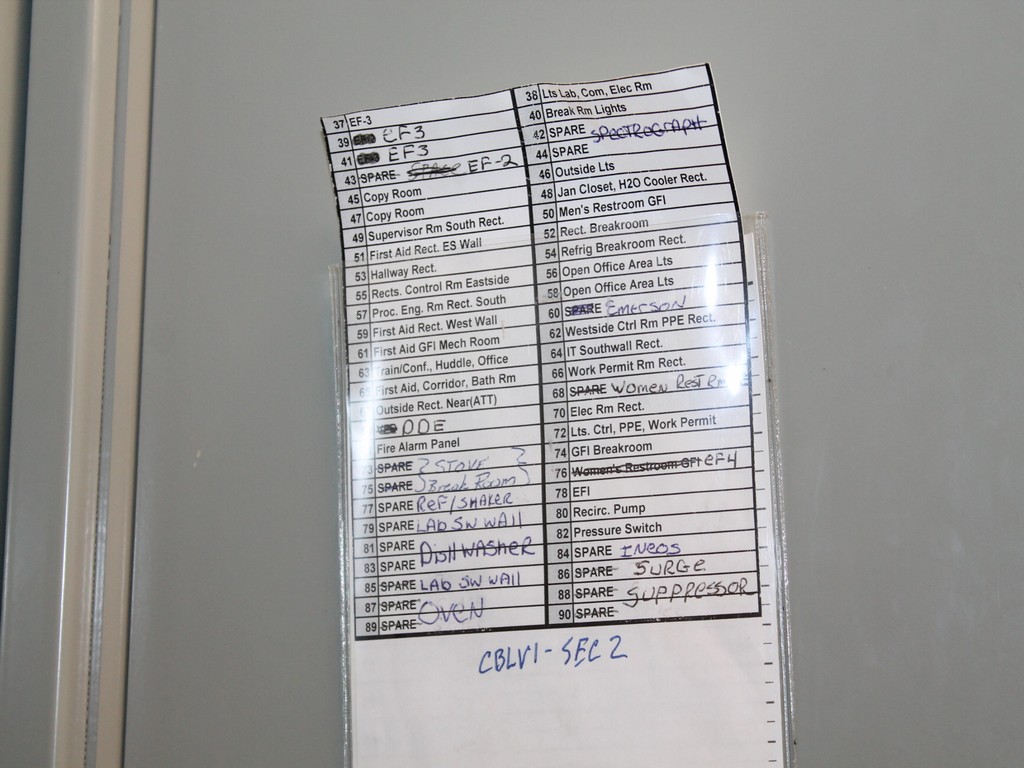 37 EF-3
39 EF3
41 EF3
43 SPARE EF-2
45 Copy Room
47 Copy Room
49 Supervisor Rm South Rect.
51 First Aid Rect. ES Wall
53 Hallway Rect.
55 Rects. Control Rm Eastside
57 Proc. Eng. Rm Rect. South
59 First Aid Rect. West Wall
61 First Aid GFI Mech Room
63 Train/Conf., Huddle, Office
First Aid, Corridor, Bath Rm
Outside Rect. Near(ATT)
DDE
Fire Alarm Panel
73 SPARE STOVE
75 SPARE Break Room
77 SPARE REF/SHAKER
79 SPARE LAB SW WALL
81 SPARE DISHWASHER
83 SPARE
85 SPARE LAB SW WALL
87 SPARE OVEN
89 SPARE
38 Lts Lab, Com, Elec Rm
40 Break Rm Lights
42 SPARE SPECTROGRAPH
44 SPARE
46 Outside Lts
48 Jan Closet, H2O Cooler Rect.
50 Men's Restroom GFI
52 Rect. Breakroom
54 Refrig Breakroom Rect.
56 Open Office Area Lts
58 Open Office Area Lts
60 SPARE EMERSON
62 Westside Ctrl Rm PPE Rect.
64 IT Southwall Rect.
66 Work Permit Rm Rect.
68 SPARE WOMEN REST RM
70 Elec Rm Rect.
72 Lts. Ctrl, PPE, Work Permit
74 GFI Breakroom
76 Women's Restroom GFI EF4
78 EFI
80 Recirc. Pump
82 Pressure Switch
84 SPARE INEOS
86 SPARE SURGE
88 SPARE SUPPPRESSOR
90 SPARE
CBLV1-SEC 2